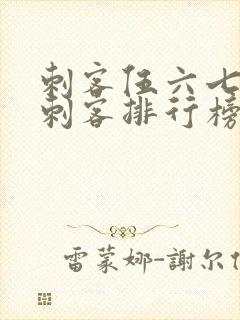 刺客伍六七
刺客排行榜
雷蒙娜-謝尔